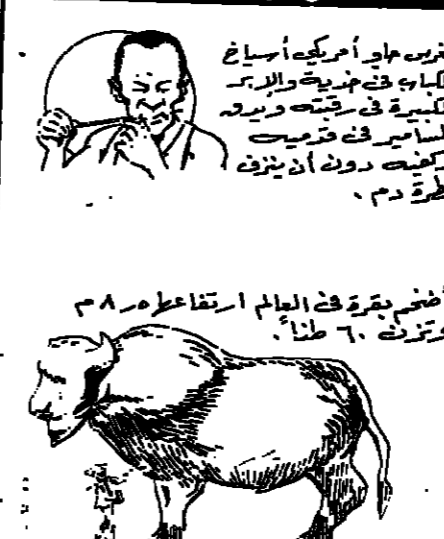 غرس حاو أمريكي أسياخ
الكباب في خديه والإبر
الكبيرة في رقبته ويدق
المسامير في قدميه
وكفيه دون أن ينزف
قطرة دم .
أضخم بقرة في العالم ارتفاعها ٨٫٥ م
وتزن ٦٠ طناً .